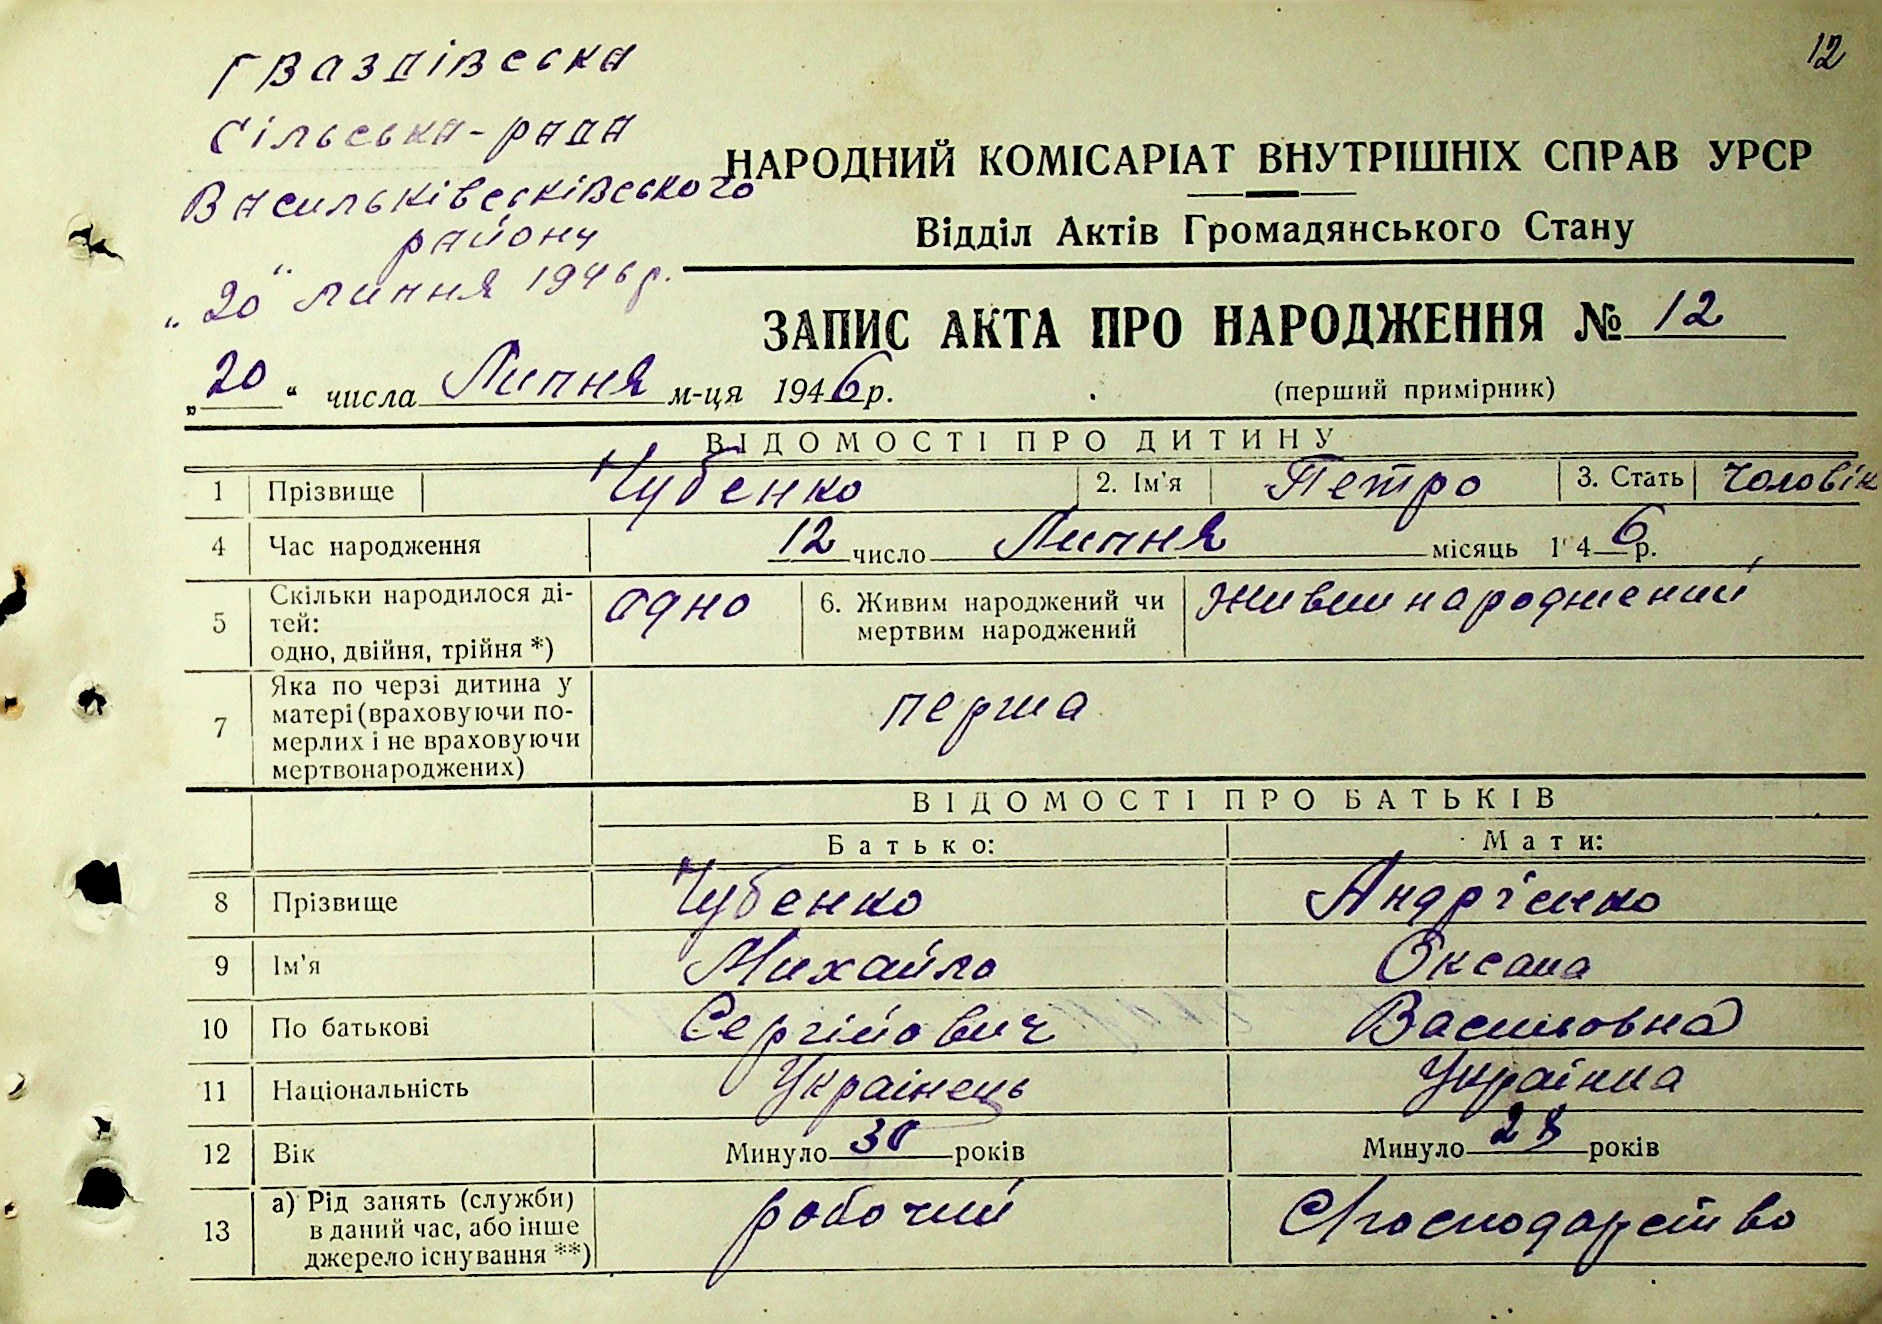 12
Гваздівська
Сільська-рада
Васильківськівського
району
„20" Липня 1946 р.
НАРОДНИЙ КОМІСАРІАТ ВНУТРІШНІХ СПРАВ УРСР
Відділ Актів Громадянського Стану
ЗАПИС АКТА ПРО НАРОДЖЕННЯ № 12
„20" числа Липня м-ця 1946 р.
(перший примірник)
ВІДОМОСТІ ПРО ДИТИНУ
1 Прізвище Чубенко 2. Ім'я Петро 3. Стать чоловік
4 Час народження 12 число Липня місяць 1 46 р.
5 Скільки народилося ді-
тей:
одно, двійня, трійня *) одно 6. Живим народжений чи
мертвим народжений Живим народжений
7 Яка по черзі дитина у
матері (враховуючи по-
мерлих і не враховуючи
мертвонароджених) перша
ВІДОМОСТІ ПРО БАТЬКІВ
Батько: Мати:
8 Прізвище Чубенко Андрієнко
9 Ім'я Михайло Оксана
10 По батькові Сергійович Васильовна
11 Національність Українець Українка
12 Вік Минуло 30 років Минуло 28 років
13 а) Рід занять (служби)
в даний час, або інше
джерело існування **) робочий Сгосподарство